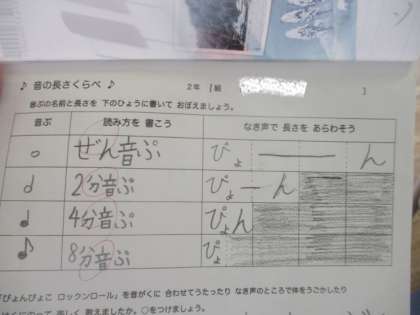 ♪ 音の長さくらべ ♪ 2年 1組
音ぷの名前と長さを 下のひょうに書いて おぼえましょう。
音ぷ 読み方を 書こう なき声で 長さを あらわそう
ぜん音ぷ ぴょ――ん
2分音ぷ ぴょーん
4分音ぷ ぴょん
8分音ぷ ぴょ
「ぴょんぴょこ ロックンロール」を音がくに 合わせてうたったり なき声のところで体をうごかしたり
楽しく 歌えましたか。○をつけましょう。